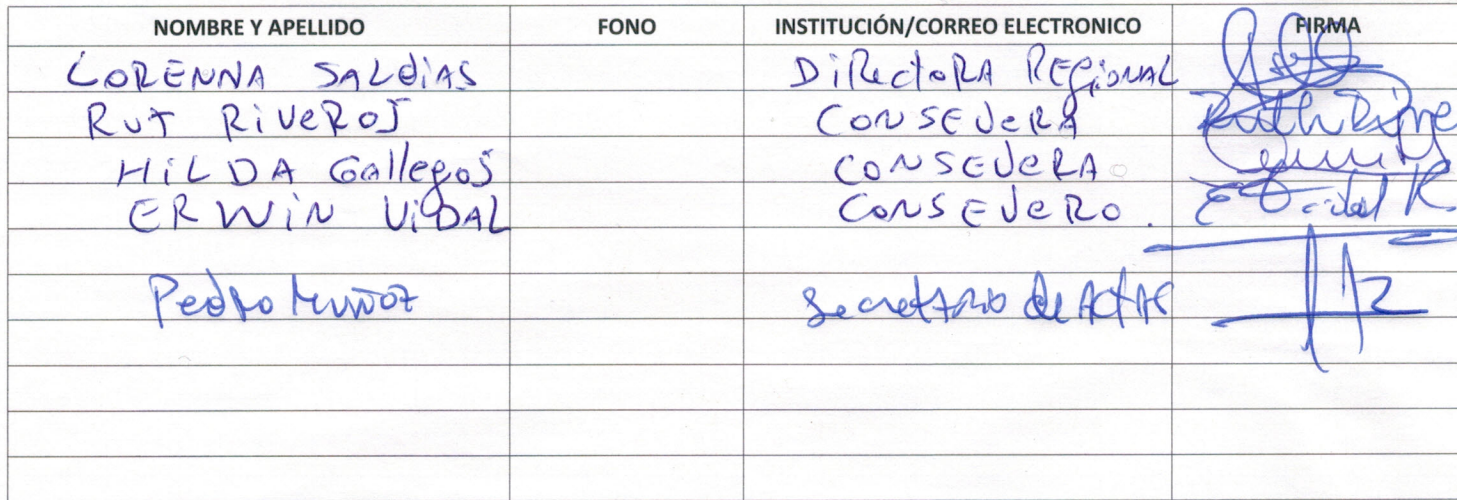 NOMBRE Y APELLIDO FONO INSTITUCIÓN/CORREO ELECTRONICO FIRMA
LORENNA SALdiAS DiRectoRA REgiONAL
RUT RiVeROS CONSEJeRA
HiLDA Gallegos CONSEJeRA
ERWiN ViDAL CONSEJeRO.
Pedro Muñoz Secretario de Actas